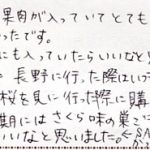 果肉が入っていてとても
ったです。
にも入っていたらいいなと
長野に行った際はいつ
桜を見に行った際に購
期にはさくら味の巣ご
いいなと思いました。←SA